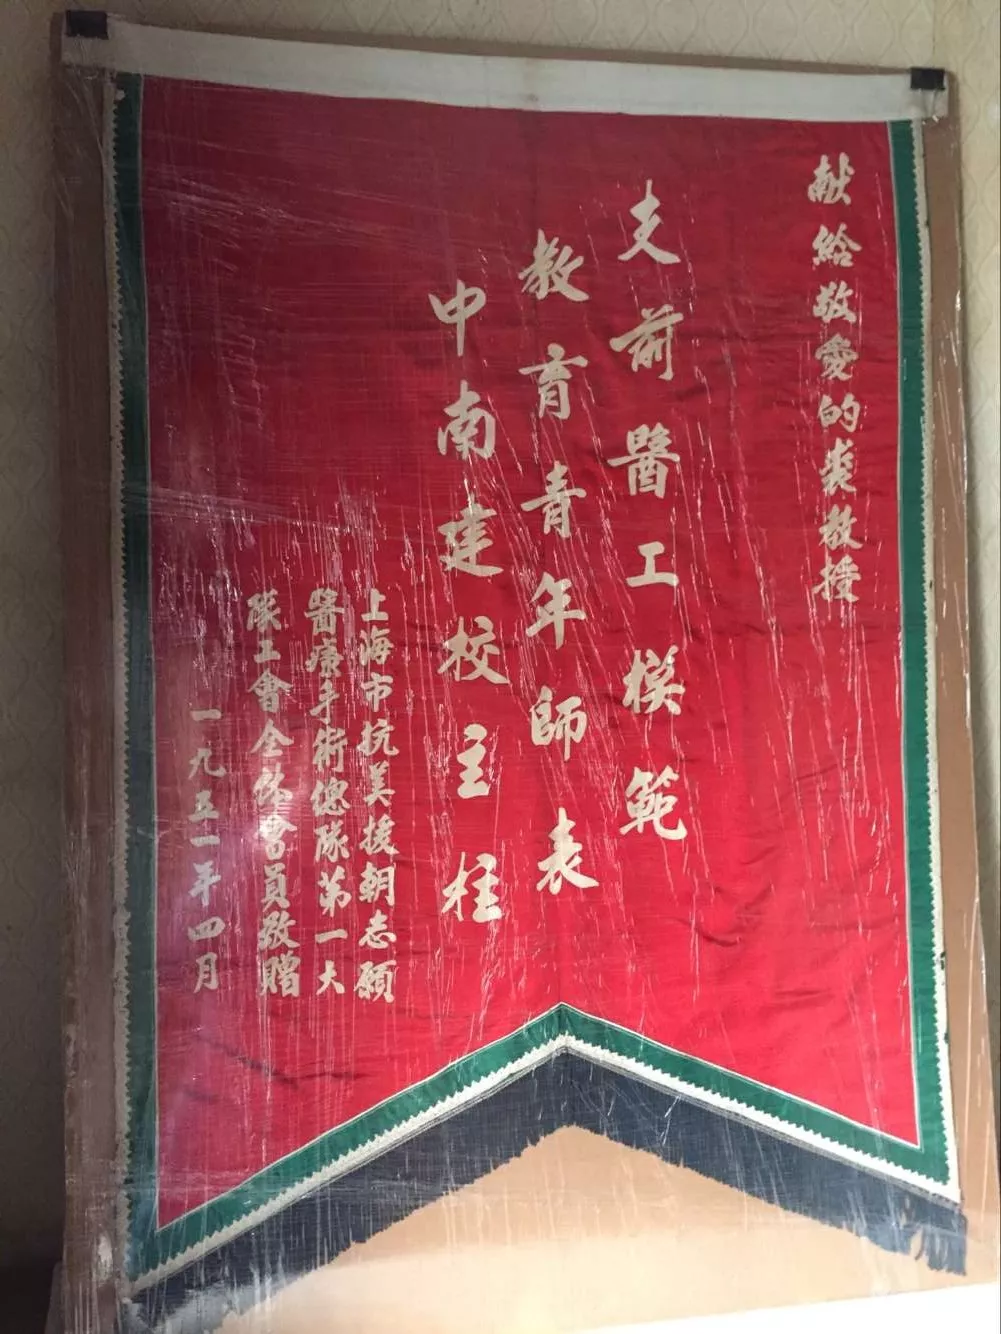 献給敬愛的裘教授
支前醫工模範
教育青年師表
中南建校主柱
上海市抗美援朝志願
醫療手術總隊第一大
隊工會全体會員敬贈
一九五一年四月